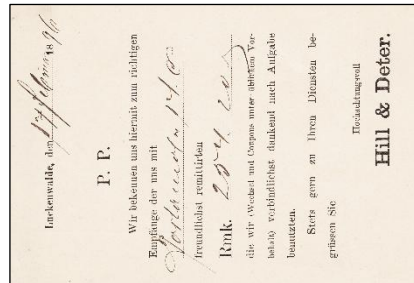 Luckenwalde, den 17 Februar 1890
P. P.
Wir bekennen uns hiermit zum richtigen
Empfange der uns mit
freundlichst remittirten
Rmk. 254.20
die wir (Wechsel und Coupons unter üblichem Vor-
behalt) verbindlichst dankend nach Aufgabe
benutzten.
Stets gern zu Ihren Diensten be-
grüssen Sie
Hochachtungsvoll
Hill & Deter.